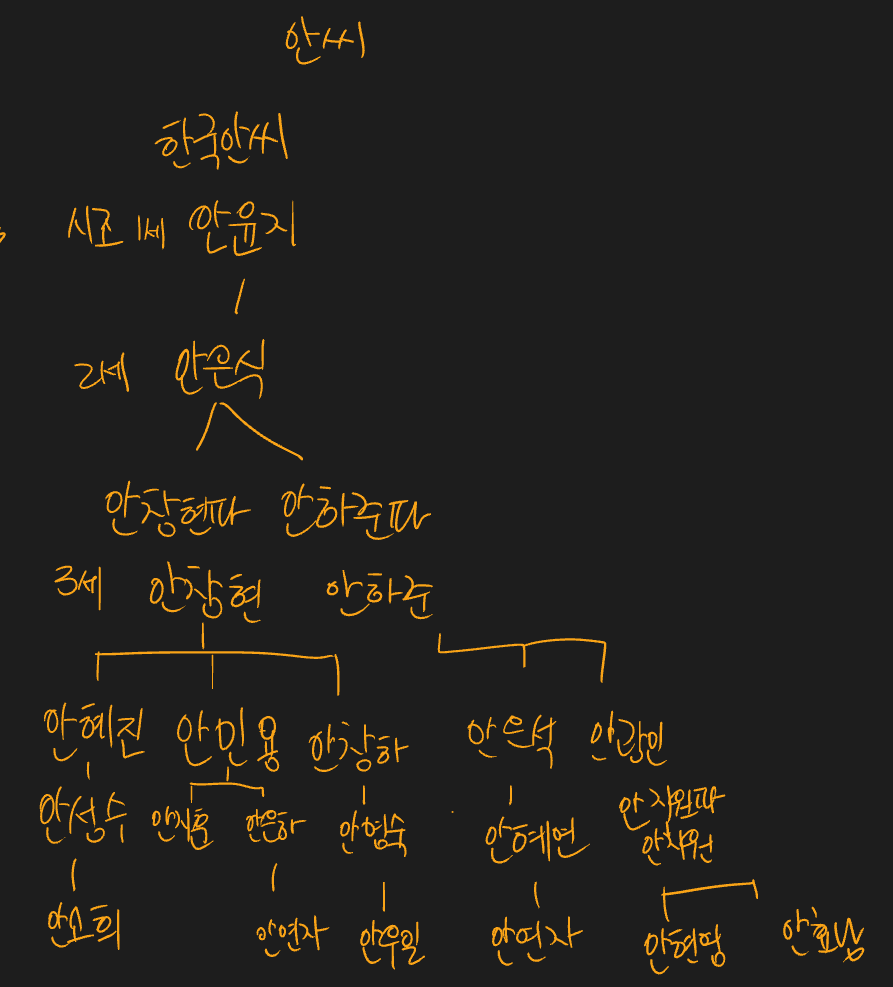 안씨
한국안씨
시조 1세 안윤지
2세 안은식
안창현파 안하준파
3세 안창현 안하준
안혜진 안민용 안창하 안은석 안광민
안성수 안지훈 안은하 안형숙 안혜연 안지원파
안지원
안소희 안연자 안우일 안연자 안현땅